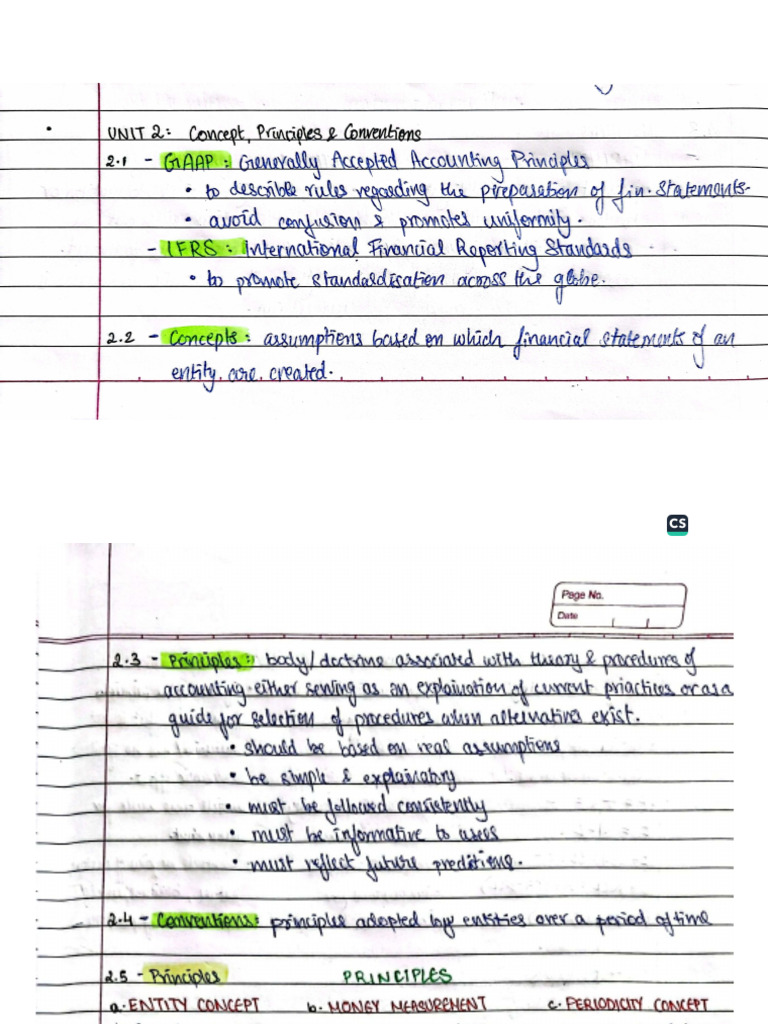 UNIT 2: Concept, Principles & Conventions
2.1 - GAAP: Generally Accepted Accounting Principles
• to describle rules regarding the preparation of fin. statements.
• avoid confusion & promotes uniformity.
- IFRS: International Financial Reporting Standards
• to promote standardisation across the globe.
2.2 - Concepts: assumptions based on which financial statements of an
entity, are, created.
CS
Page No.
Date
2.3 - Principles: body/doctrine associated with theory & procedures of
accounting either serving as an explaination of current priactices or as a
guide for selection of procedures when alternatives exist.
• should be based on real assumptions
• be simple & explainatory
• must be followed consistently
• must be informative to users
• must reflect future preditions.
2.4 - Conventions: principles adopted by entities over a period of time
2.5 - Principles PRINCIPLES
a. ENTITY CONCEPT b. MONEY MEASUREMENT c. PERIODICITY CONCEPT